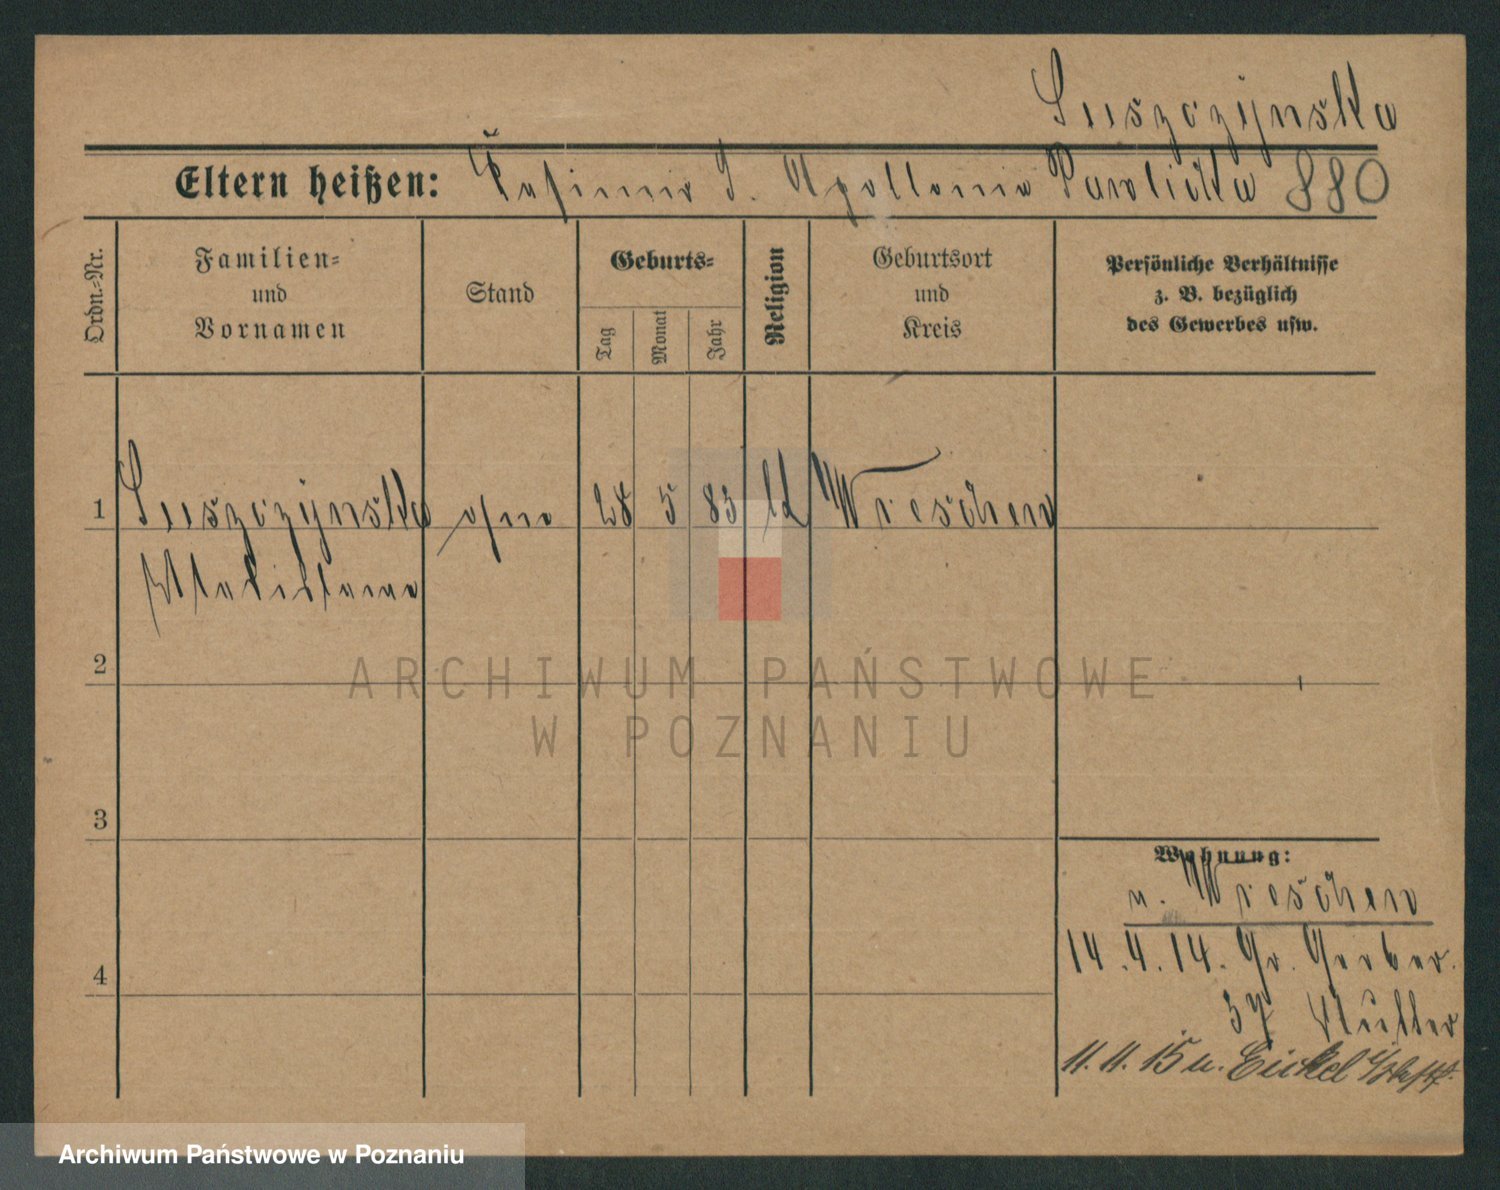 Suszczynska
Eltern heißen: Casimir S. Apollonia Pawlicka 880
Ordn.-Nr.
Familien-
und
Vornamen
Stand
Geburts-
Tag
Monat
Jahr
Religion
Geburtsort
und
Kreis
Persönliche Verhältnisse
z. B. bezüglich
des Gewerbes usw.
1 Suszczynska 28 5 83 Wreschen
Wladislawa
2
3
4
Wohnung:
n. Wreschen
14.4.14. Gr. Gerber.
37
11.11.15 n. Eickel
ARCHIWUM PAŃSTWOWE
W POZNANIU
Archiwum Państwowe w Poznaniu